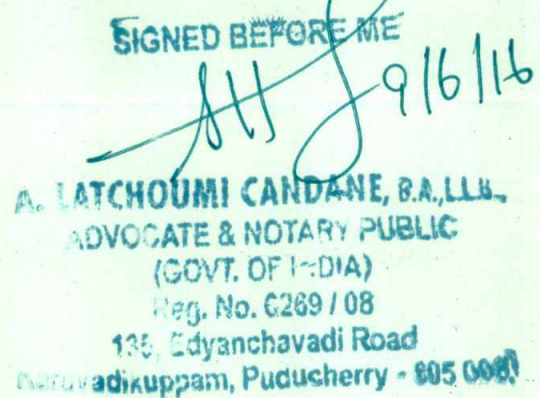 SIGNED BEFORE ME
9/6/16
A. LATCHOUMI CANDANE, B.A.,LLB.,
ADVOCATE & NOTARY PUBLIC
(GOVT. OF INDIA)
Reg. No. 6269 / 08
135, Edyanchavadi Road
Karuvadikuppam, Puducherry - 605 008.